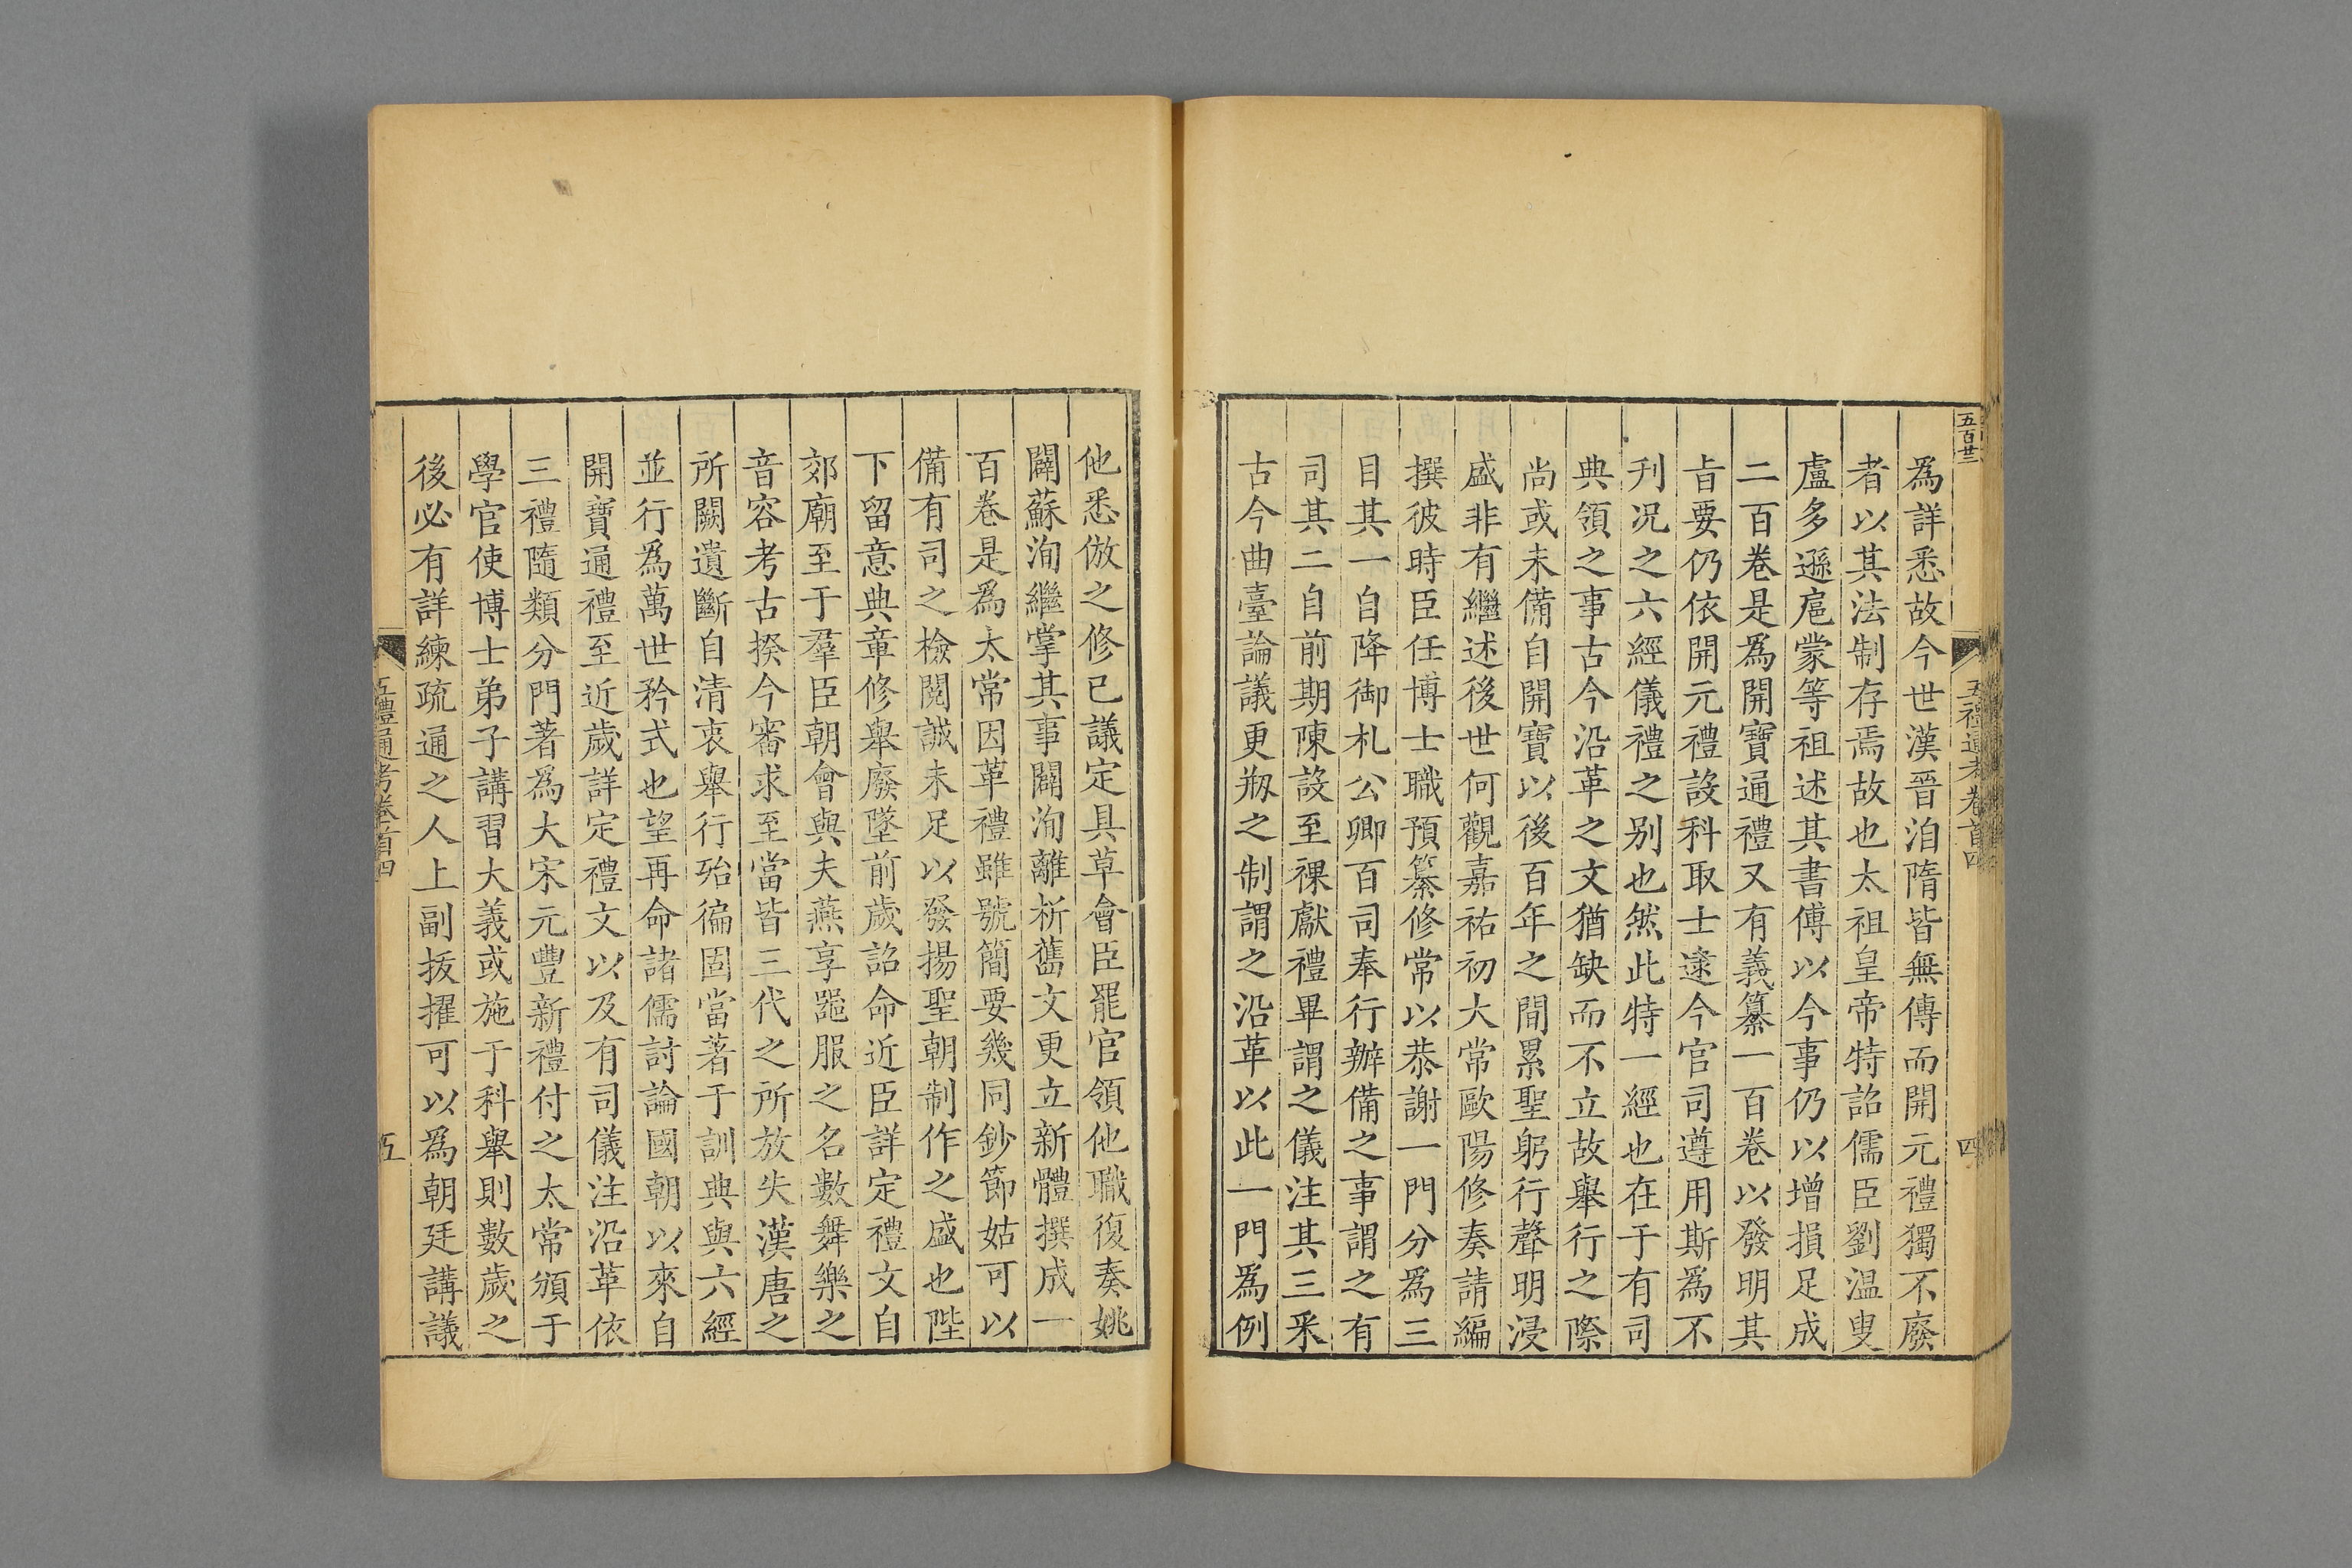 五百廿三
五禮通考卷首四
四
爲詳悉故今世漢晉洎隋皆無傳而開元禮獨不廢
者以其法制存焉故也太祖皇帝特詔儒臣劉温叟
盧多遜扈蒙等祖述其書傅以今事仍以增損足成
二百卷是爲開寶通禮又有義纂一百卷以發明其
旨要仍依開元禮設科取士逮今官司遵用斯爲不
刋况之六經儀禮之别也然此特一經也在于有司
典領之事古今沿革之文猶缺而不立故舉行之際
尚或未備自開寶以後百年之間累聖躬行聲明浸
盛非有繼述後世何觀嘉祐初大常歐陽修奏請編
撰彼時臣任博士職預纂修常以恭謝一門分爲三
目其一自降御札公卿百司奉行辦備之事謂之有
司其二自前期陳設至祼獻禮畢謂之儀注其三釆
古今曲臺論議更剏之制謂之沿革以此一門爲例
他悉倣之修已議定具草會臣罷官領他職復奏姚
闢蘇洵繼掌其事闢洵離析舊文更立新體撰成一
百卷是爲太常因革禮雖號簡要幾同鈔節姑可以
備有司之檢閲誠未足以發揚聖朝制作之盛也陛
下留意典章修舉廢墜前歲詔命近臣詳定禮文自
郊廟至于羣臣朝會與夫燕享器服之名數舞樂之
音容考古揆今審求至當皆三代之所放失漢唐之
所闕遺斷自清衷舉行殆徧固當著于訓典與六經
並行爲萬世矜式也望再命諸儒討論國朝以來自
開寶通禮至近歲詳定禮文以及有司儀注沿革依
三禮隨類分門著爲大宋元豐新禮付之太常頒于
學官使博士弟子講習大義或施于科舉則數歲之
後必有詳練疏通之人上副拔擢可以爲朝廷講議
五禮通考卷首四
五